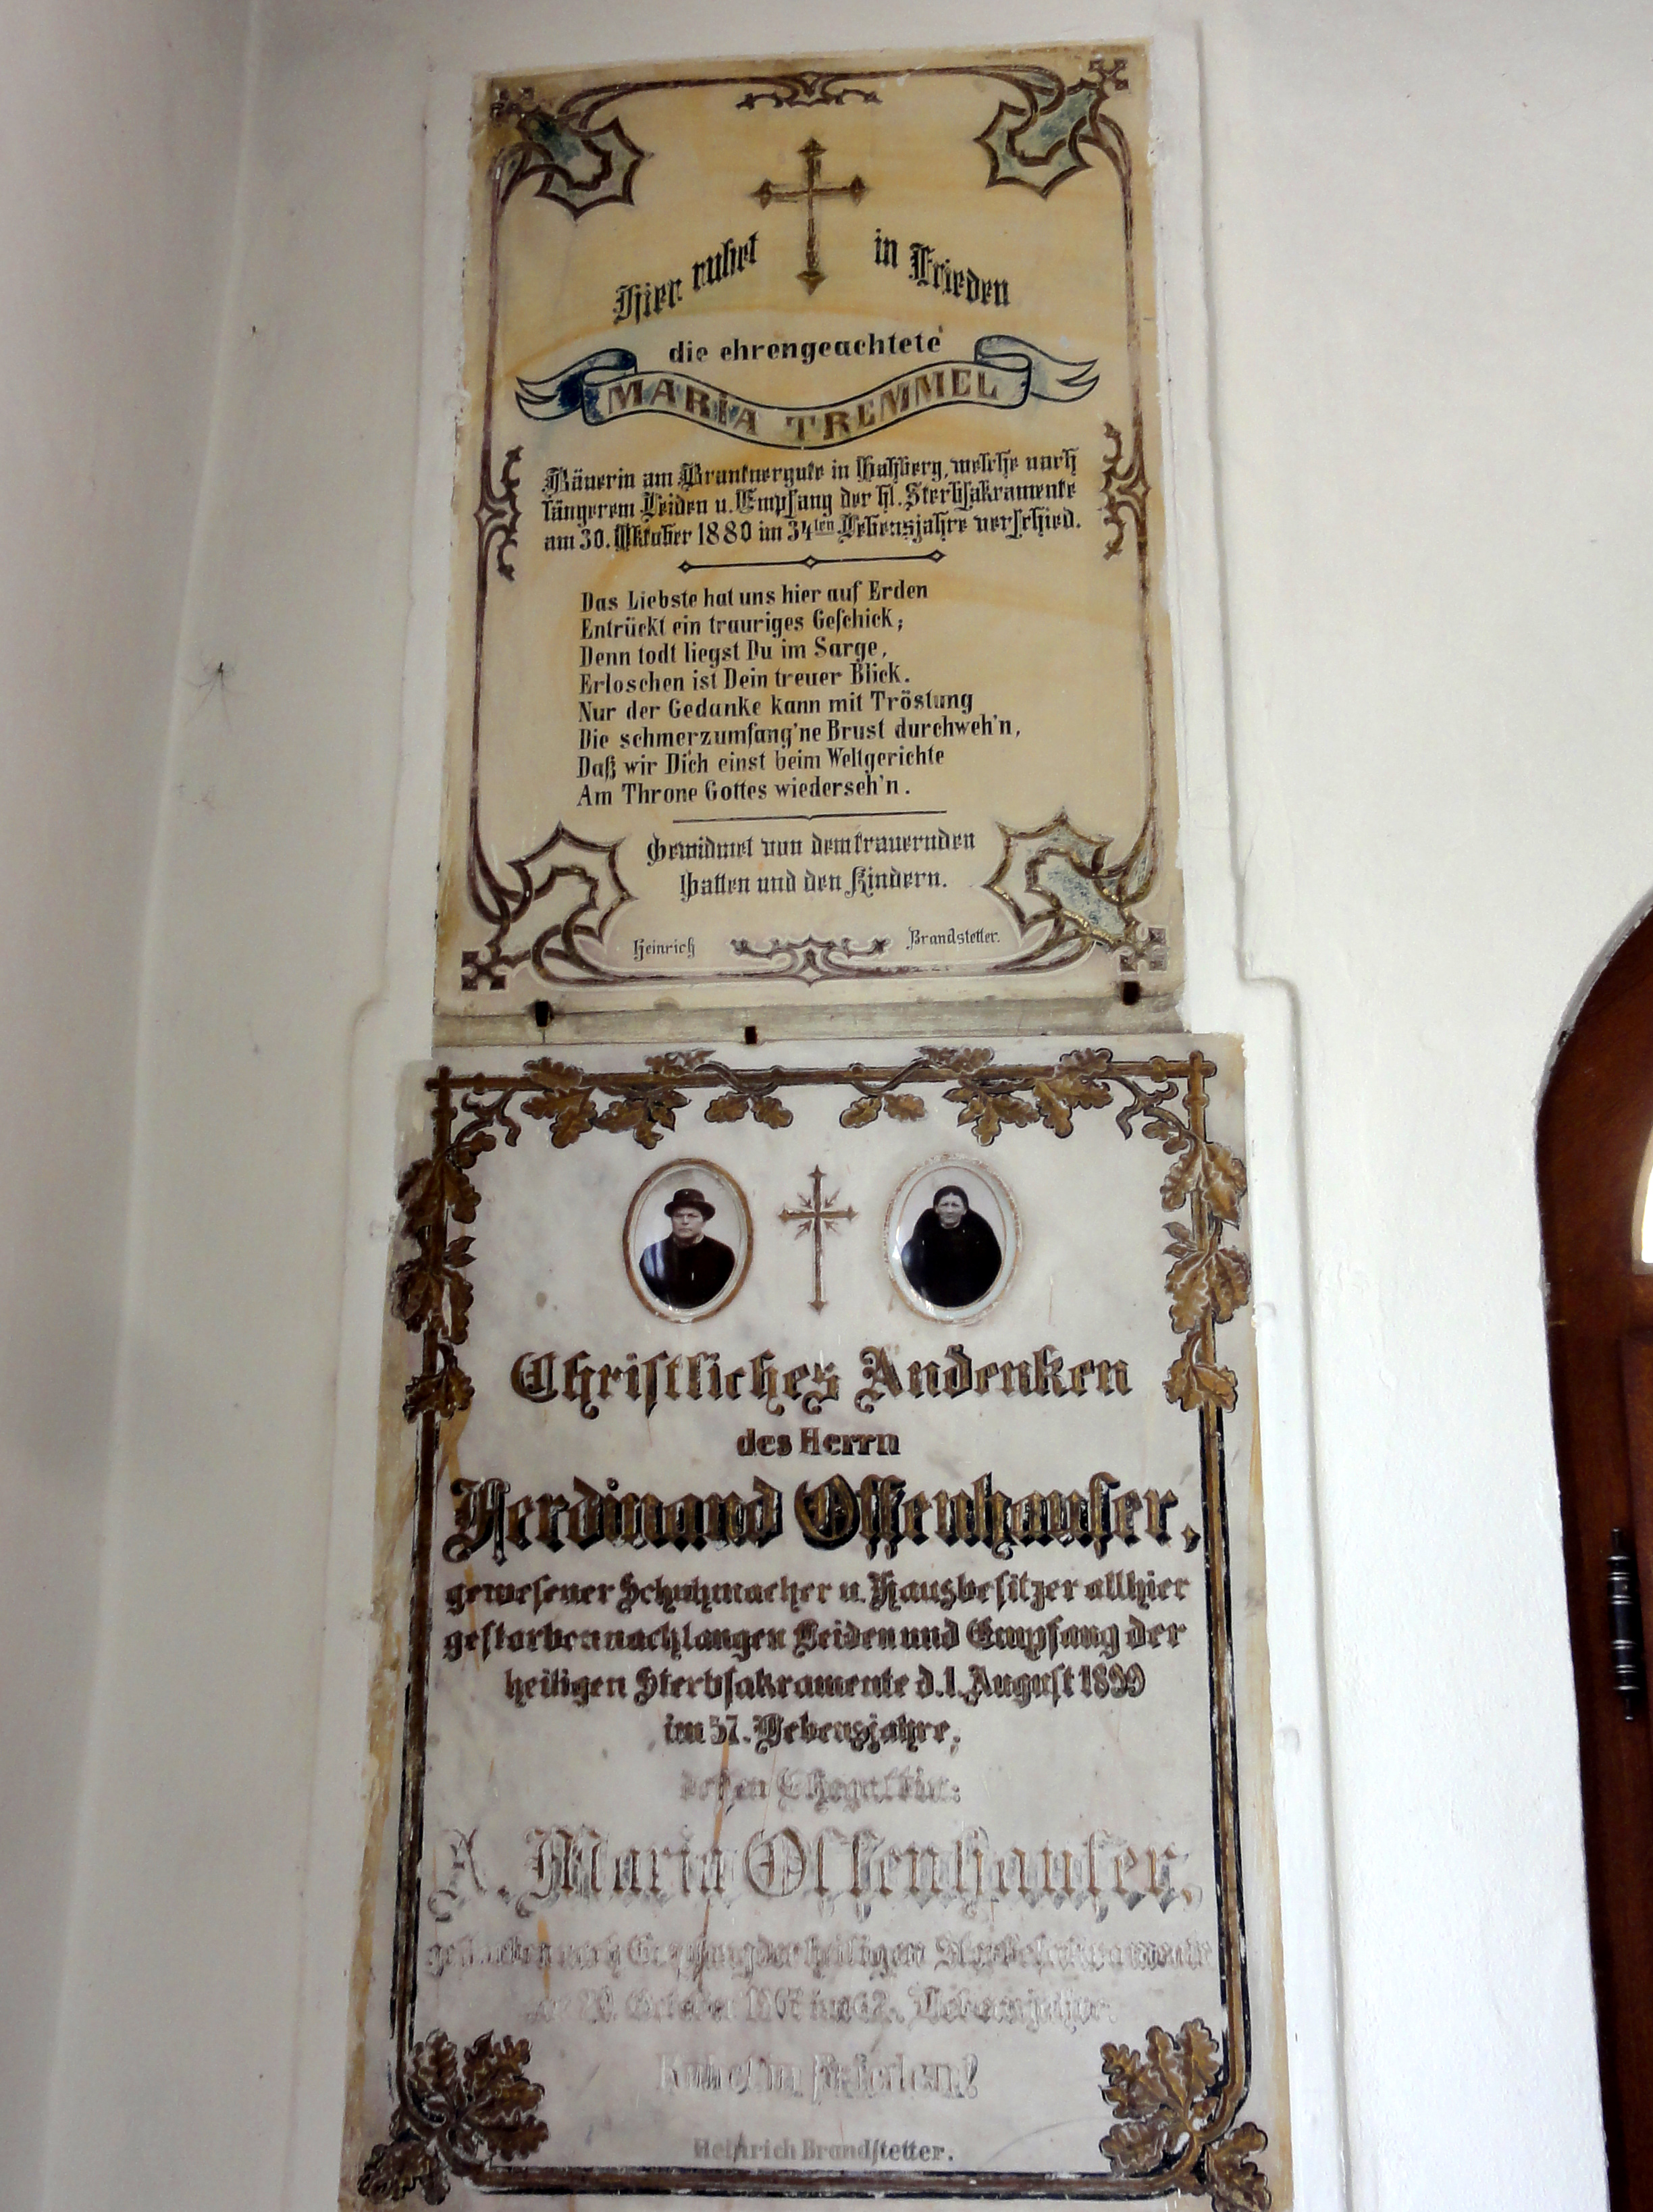 Hier ruhet in Frieden
die ehrengeachtete
MARIA TREMMEL
Bäuerin am Brantnergute in Gahberg, welche nach
längerem Leiden u. Empfang der hl. Sterbsakramente
am 30. Oktober 1880 im 34ten Lebensjahre verschied.
Das Liebste hat uns hier auf Erden
Entrückt ein trauriges Geschick;
Denn todt liegst Du im Sarge,
Erloschen ist Dein treuer Blick.
Nur der Gedanke kann mit Tröstung
Die schmerzumfang'ne Brust durchweh'n,
Daß wir Dich einst beim Weltgerichte
Am Throne Gottes wiederseh'n.
Gewidmet von dem trauernden
Gatten und den Kindern.
Heinrich Brandstetter.
Christliches Andenken
des Herrn
Ferdinand Offenhauser,
gewesener Schuhmacher u. Hausbesitzer allhier
gestorben nach langen Leiden und Empfang der
heiligen Sterbsakramente d. 1. August 1899
im 57. Lebensjahre,
dessen Ehegattin:
A. Maria Offenhauser,
gestorben nach Empfang der heiligen Sterbesakramente
October im 62. Lebensjahre.
Heinrich Brandstetter.